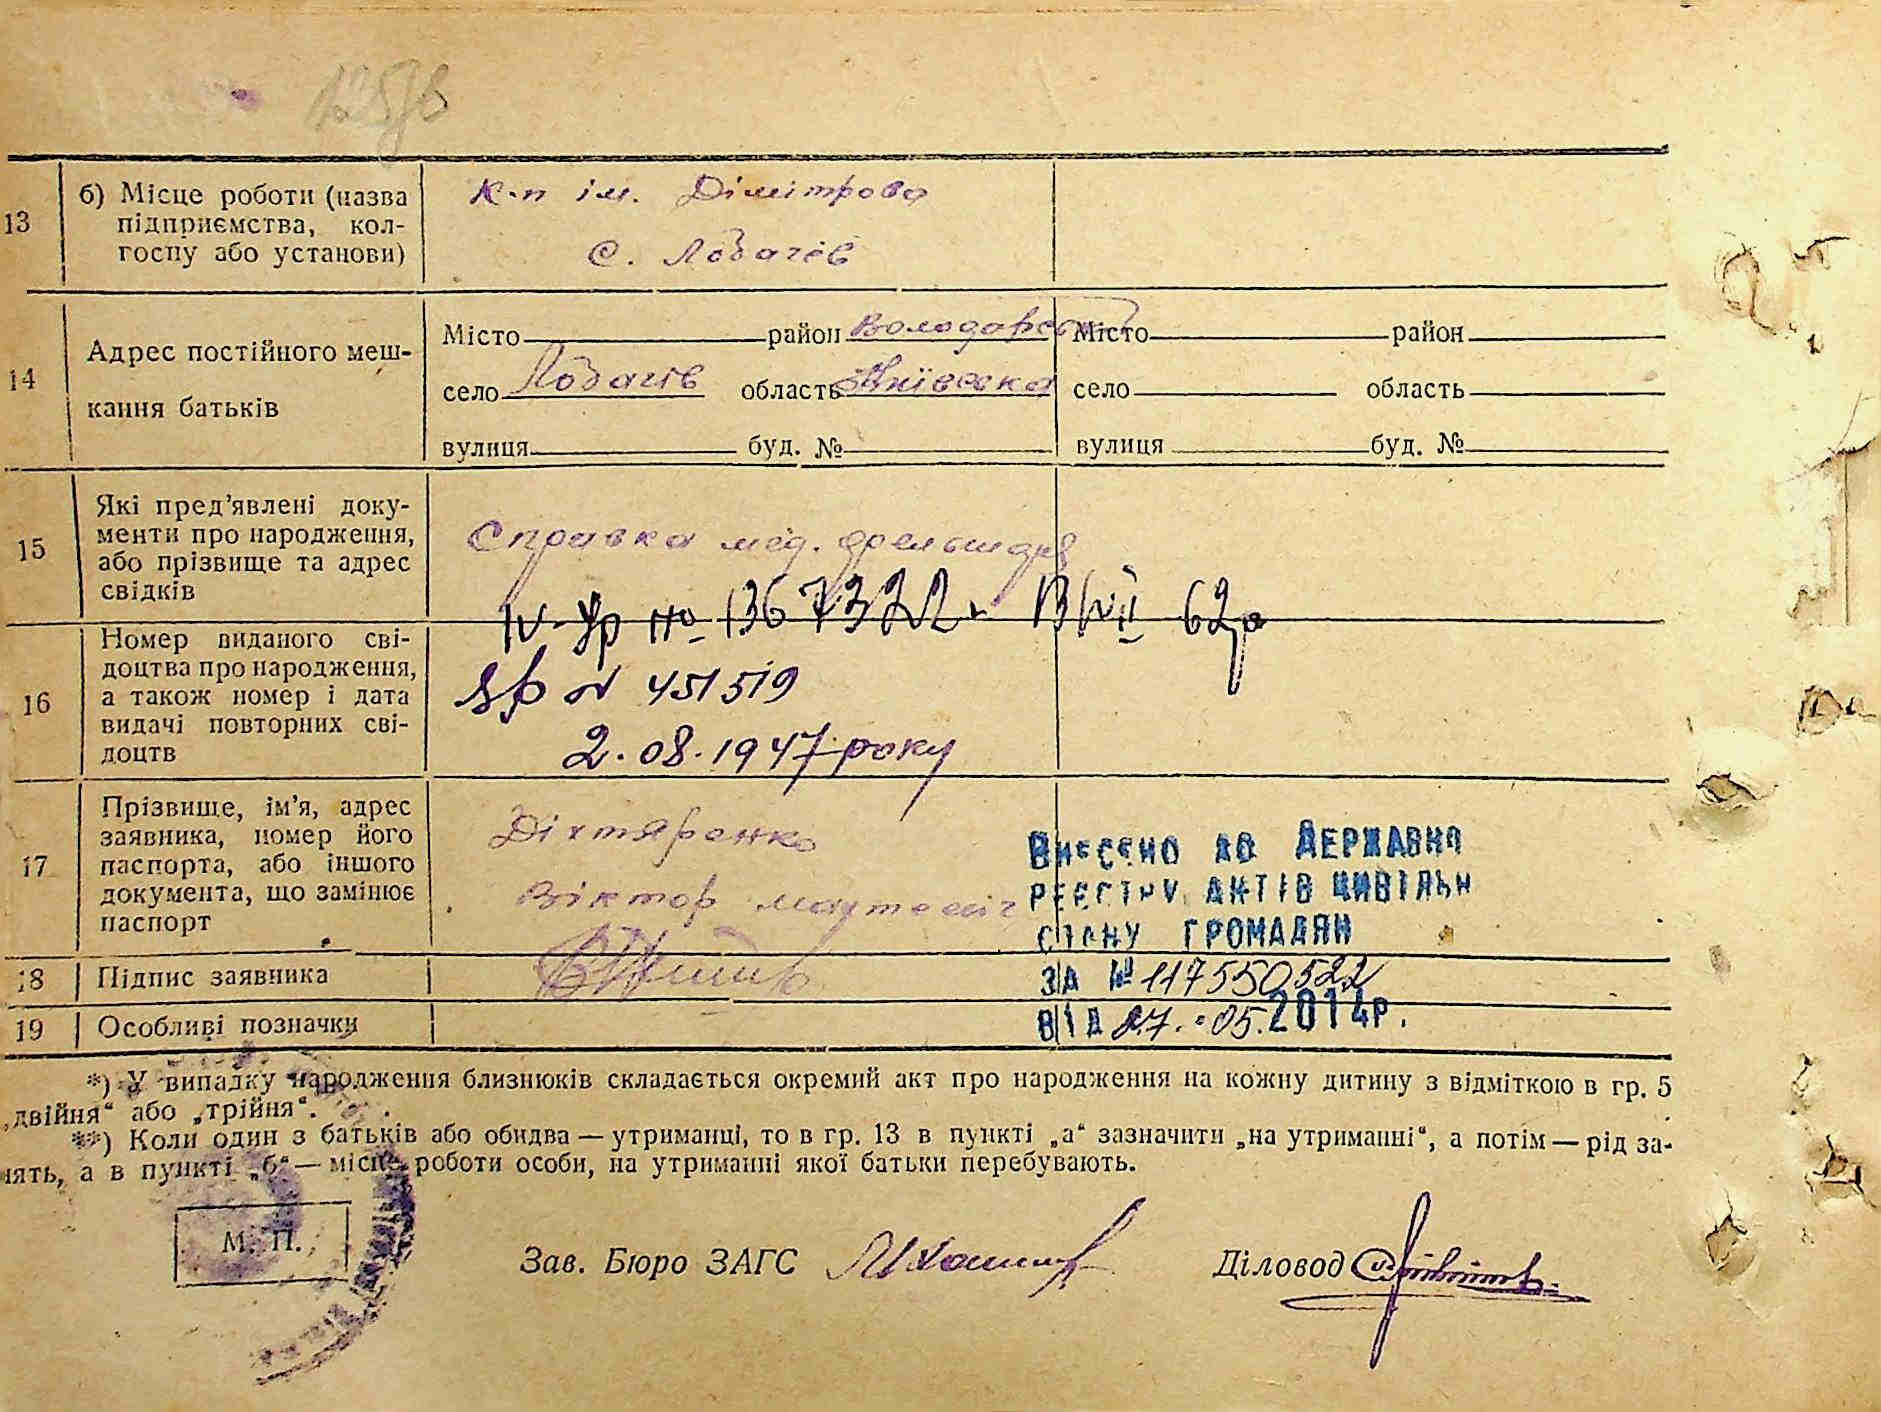 13
б) Місце роботи (назва
підприємства, кол-
госпу або установи)
к-п ім. Дімітрова
с. Лобачів
14
Адрес постійного меш-
кання батьків
Місто район Володарський
село Лобачів область Київська
вулиця буд. №
Місто район
село область
вулиця буд. №
15
Які пред’явлені доку-
менти про народження,
або прізвище та адрес
свідків
Справка мед. фельшара
16
Номер виданого сві-
доцтва про народження,
а також номер і дата
видачі повторних сві-
доцтв
IV-УР № 1367322 13/VII 62р
№ 451519
2.08.1947 року
17
Прізвище, ім’я, адрес
заявника, номер його
паспорта, або іншого
документа, що замінює
паспорт
Діхтяренко
Віктор
18
Підпис заявника
19
Особливі позначки
Внесено до Державно
реєстру актів цивільн
стану громадян
за № 117550522
від 27.05.2014р.
*) У випадку народження близнюків складається окремий акт про народження на кожну дитину з відміткою в гр. 5
„двійня“ або „трійня“.
**) Коли один з батьків або обидва — утриманці, то в гр. 13 в пункті „а“ зазначити „на утриманні“, а потім — рід за-
нять, а в пункті „б“ — місце роботи особи, на утриманні якої батьки перебувають.
М. П.
Зав. Бюро ЗАГС
Діловод